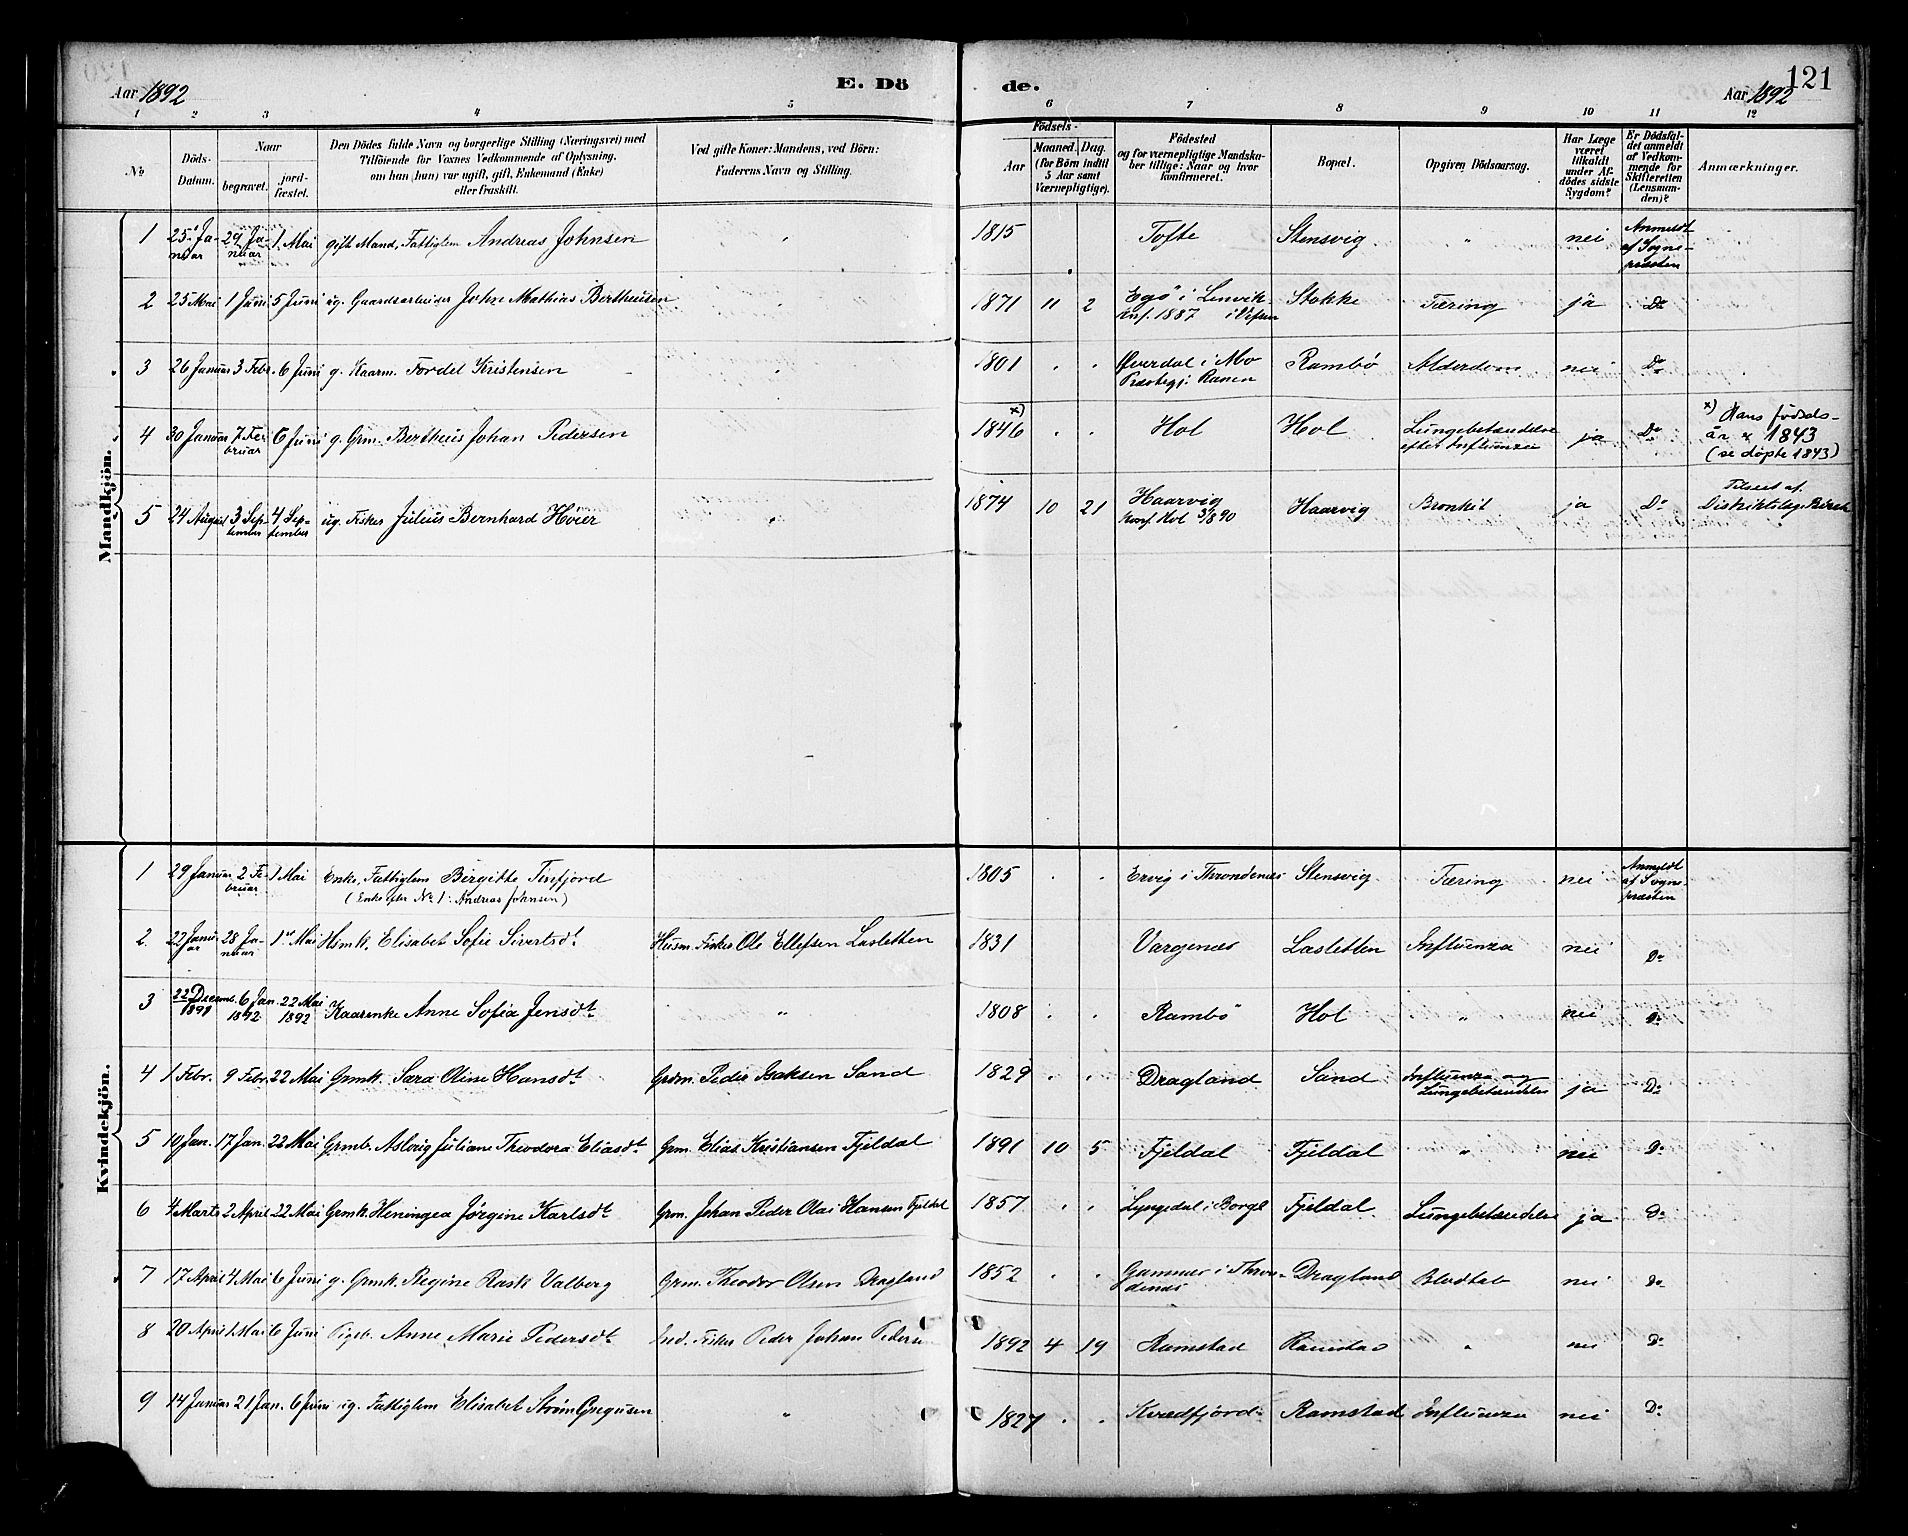 Aar 1892 E. Dö de. Aar 1892 121
1 2 3 4 5 6 7 8 9 10 11 12
No
Döds-Datum.
Naar
begravet.
jord-fæstet.
Den Dödes fulde Navn og borgerlige Stilling (Næringsvei) med
Tilföiende for Voxnes Vedkommende af Oplysning,
om han (hun) var ugift, gift, Enkemand (Enke)
eller fraskilt.
Ved gifte Koner: Mandens, ved Börn:
Faderens Navn og Stilling.
Födsels-
Aar
Maaned. Dag.
(for Börn indtil
5 Aar samt
Værnepligtige).
Födested
og for værnepligtige Mandska-
ber tillige: Naar og hvor
konfirmeret.
Bopæl.
Opgiven Dödsaarsag.
Har Læge
været
tilkaldt
under Af-
dödes sidste
Sygdom?
Er Dödsfal-
det anmeldt
af Vedkom-
mende for
Skifteretten
(Lensman-
den)?
Anmærkninger.
Mandkjön.
1 25 Januar 29 Januar 1 Mai gift Mand, Fattiglem Andreas Johnsen " 1815 Tofte Stensvig " nei Anmeldt af Sogne-præsten
2 25 Mai 1 Juni 5 Juni ug. Gaardsarbeider John Mathias Bertheusen " 1871 11 2 Egö i Lenvik konf. 1887 i Vefsen Stokke Tæring ja Do
3 26 Januar 3 Febr. 6 Juni g. Kaarm. Fordel Kristensen " 1801 . . Præstegj. Ranen i Mo Rambö Alderdom nei Do
4 30 Januar 7 Februar 6 Juni g. Grm. Bertheus Johan Pedersen x) 1846 . . Hol Hol Lungebetændelse efter Influenza ja Do x) Hans födsels-
år er 1843
(se döpte 1843)
5 24 August 3 September 4 September ug. Fisker Julius Bernhard Hveer " 1874 10 21 Haarvig konf Hol 3/8 90 Haarvig Bronkit ja Do Tilseet af Distriktslæge
Kvindekjön.
1 29 Januar 2 Februar 1 Mai Enke, Fattiglem Birgitte Tinfjord 1805 . . Ervig i Throndenes Stensvig Tæring nei Anmeldt af Sogne-præsten
(Enke efter No 1: Andreas Johnsen)
2. 22 Januar 28 Januar 1 Mai Hsmk. Elisabet Sofie Sivertsdt Husm. Fisker Ole Ellefsen Lasletten 1831 Vargenes Lasletten Influenza nei Do
3 22 Decemb. 1891 6 Jan. 1892 22 Mai 1892 Kaarenke Anne Sofia Jensdt " 1808 . . Rambö Hol " nei Do
4 1 Febr. 9 Febr. 22 Mai Grmk. Sara Oline Hansdt Grdm. Peder Isaksen Sand 1829 . . Dragland Sand Influenza og Lungebetændelse ja Do
5 10 Jan. 17 Jan. 22 Mai Grmb. Aslaug Juliane Theodora Eliasdt Grm. Elias Kristiansen Fjeldal 1891 10 5 Fjeldal Fjeldal " nei Do
6 4 Marts 2 April 22 Mai Grmk. Heningea Jörgine Karlsdt Grm. Johan Peder Olai Hansen Fjeldal 1857 . . Lyngedal i Borge Fjeldal Lungebetændelse ja Do
7 17 April 4 Mai 6 Juni g. Grmk. Regine Rask Valberg Grm. Theodor Olsen Dragland 1852 . . i Throndenes Dragland Blodtab nei Do
8 20 April 1 Mai 6 Juni Pigeb. Anne Marie Pedersdt Ind. Fisker Peder Johan Pedersen 1892 4 19 Ramstad Ramstad " nei Do
9 14 Januar 21 Jan. 6 Juni ug. Fattiglem Elisabet Ström Gregusen " 1827 . . Kvædfjord Ramstad Influenza nei Do